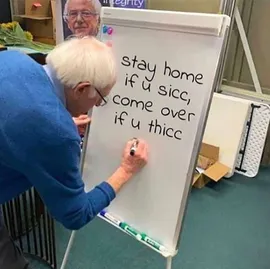 integrity
stay home
if u sicc,
come over
if u thicc